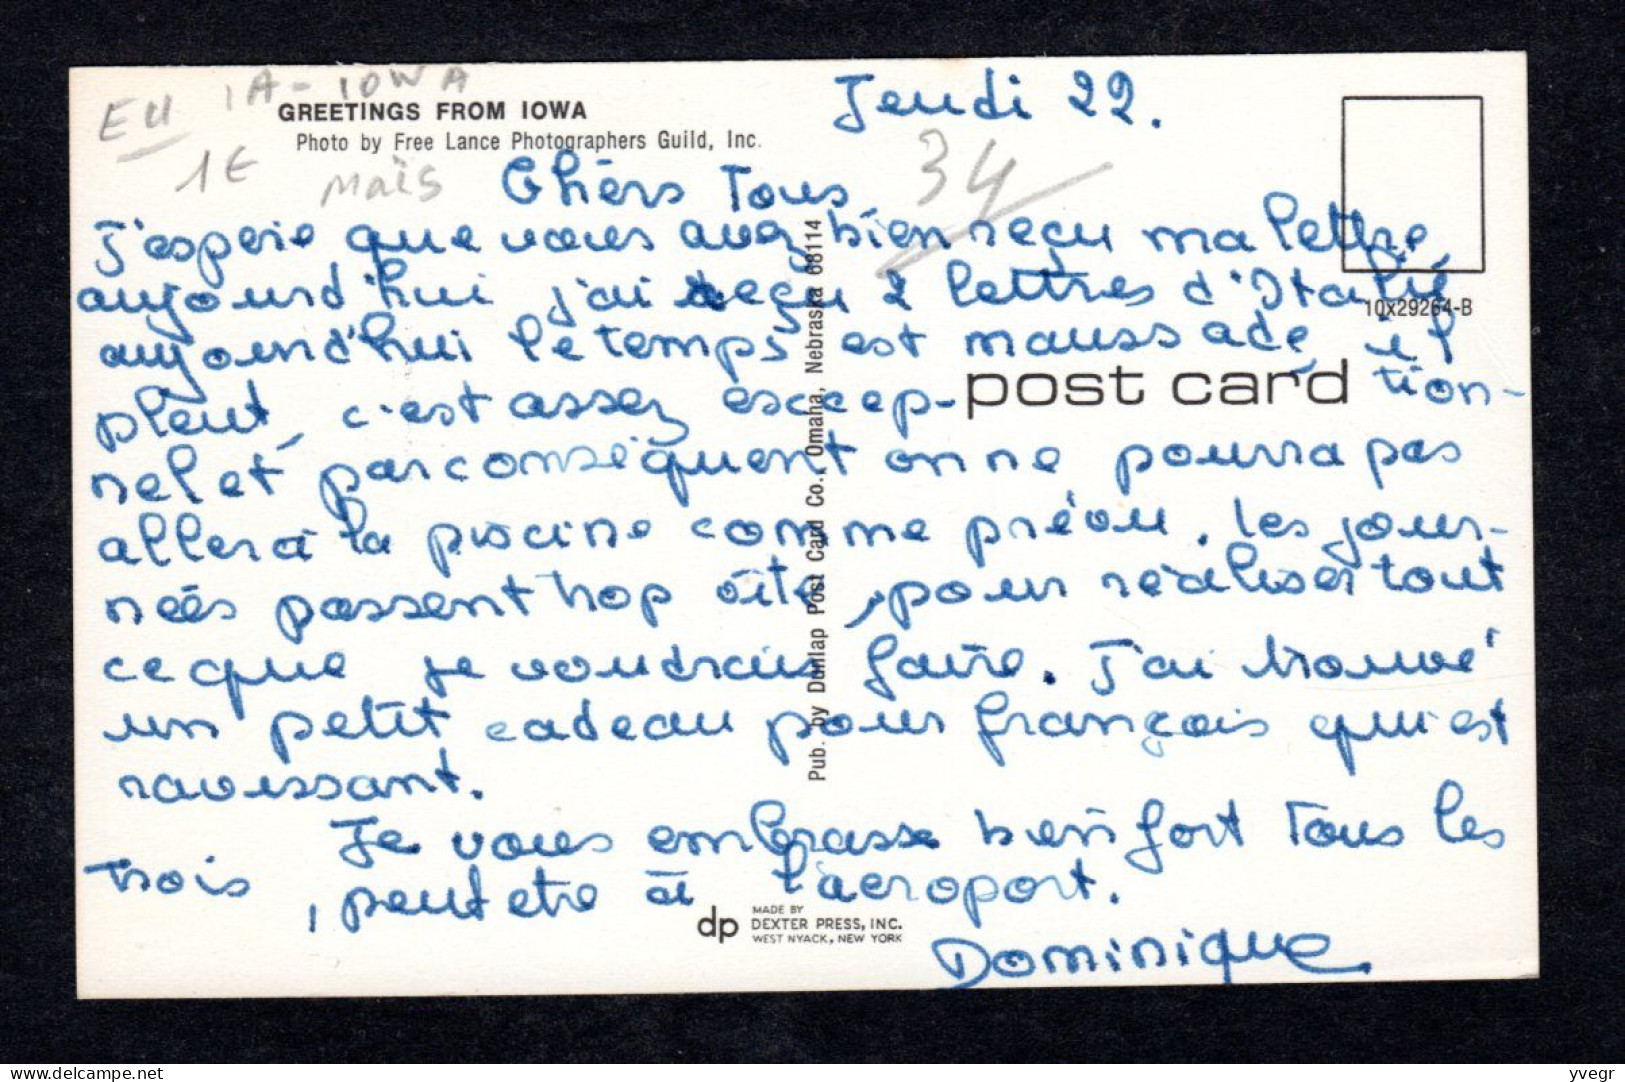 EU
IA - IOWA
1€
Maïs
34
GREETINGS FROM IOWA
Photo by Free Lance Photographers Guild, Inc.
Jeudi 22.
Chers Tous
J'espère que vous avez bien reçu ma lettre,
aujourd'hui j'ai reçu 2 lettres d'Italie
aujourd'hui le temps est maussade, il
pleut, c'est assez excep- tion-
nel et par conséquent on ne pourra pas
aller à la piscine comme prévu. Les jour-
nées passent trop vite, pour réaliser tout
ce que je voudrais faire. J'ai trouvé
un petit cadeau pour françois qui est
ravissant.
Je vous embrasse bien fort Tous les
trois, peut etre à l'aéroport.
Dominique
post card
10x29264-B
Pub. by Dunlap Post Card Co., Omaha, Nebraska 68114
dp MADE BY
DEXTER PRESS, INC.
WEST NYACK, NEW YORK
delcampe.net
yvegr